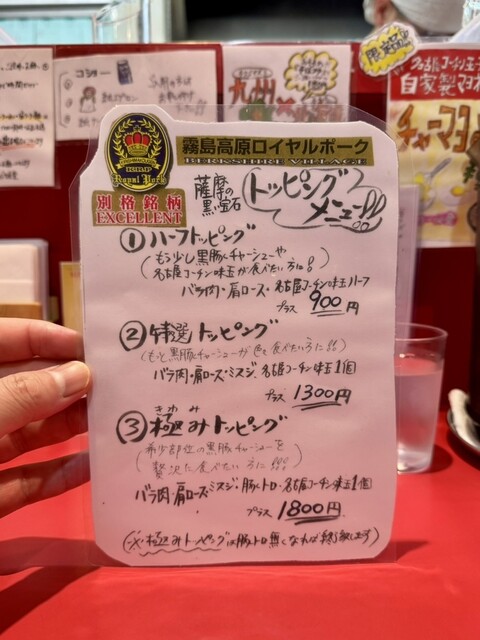 霧島高原ロイヤルポーク
BERKSHIRE VILLAGE
Royal Pork
別格銘柄
EXCELLENT
薩摩の
黒い宝石
トッピング
メニュー!!
① ハーフトッピング
(もう少し黒豚チャーシューや
名古屋コーチン味玉が食べたい方に!)
バラ肉・肩ロース・名古屋コーチン味玉ハーフ
プラス 900円
② 特選トッピング
(もっと黒豚チャーシューが色々食べたい方に!!)
バラ肉・肩ロース・ミスジ、名古屋コーチン味玉1個
プラス 1300円
③ 極みトッピング
きわ
(希少部位の黒豚チャーシューを
贅沢に食べたい方に!!!)
バラ肉・肩ロース・ミスジ・豚トロ・名古屋コーチン味玉1個
プラス 1800円
(※極みトッピングは豚トロ無くなれば終了致します)
限定品
名古屋コーチン玉子
自家製マヨ
チャーマヨ
九州